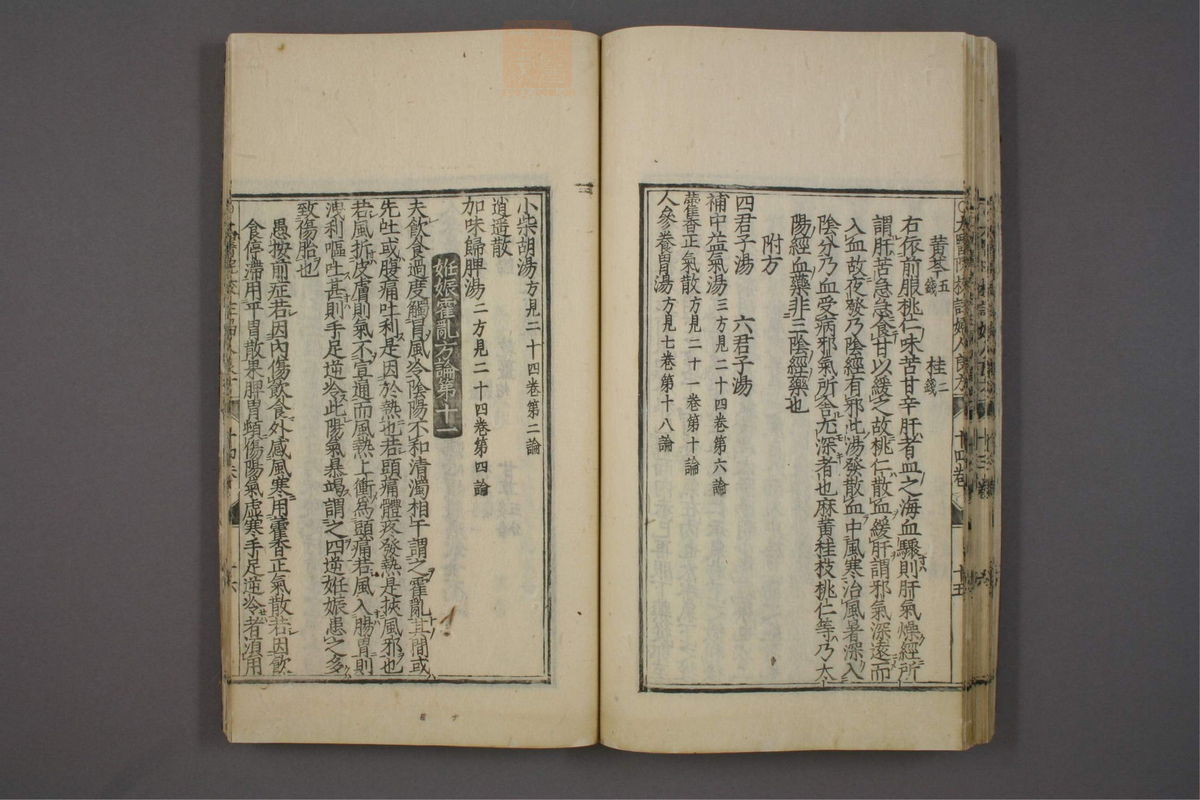 黄芩五錢　桂二錢
右依前服桃仁味苦甘辛肝者血之海血驟則肝氣燥經所
謂肝苦急急食甘以緩之故桃仁散血緩肝謂邪氣深遠而
入血故夜發乃陰經有邪此湯發散血中風寒治風暑深入
陰分乃血受病邪氣所舍尤深者也麻黄桂枝桃仁等乃太
陽經血藥非三陰經藥也
附方
四君子湯　六君子湯
補中益氣湯三方見二十四卷第六論
藿香正氣散方見二十一卷第十論
人參養胃湯方見七卷第十八論
小柴胡湯方見二十四卷第二論
逍遥散
加味歸脾湯二方見二十四卷第四論
妊娠霍亂方論第十一
夫飲食過度觸冒風冷陰陽不和清濁相干謂之霍亂其間或
先吐或腹痛吐利是因於熱也若頭痛體疼發熱是挾風邪也
若風折皮膚則氣不宣通而風熱上衝為頭痛若風入腸胃則
洩利嘔吐甚則手足逆冷此陽氣暴竭謂之四逆妊娠患之多
致傷胎也
愚按前症若因内傷飲食外感風寒用藿香正氣散若因飲
食停滯用平胃散果脾胃頻傷陽氣虚寒手足逆冷者須用